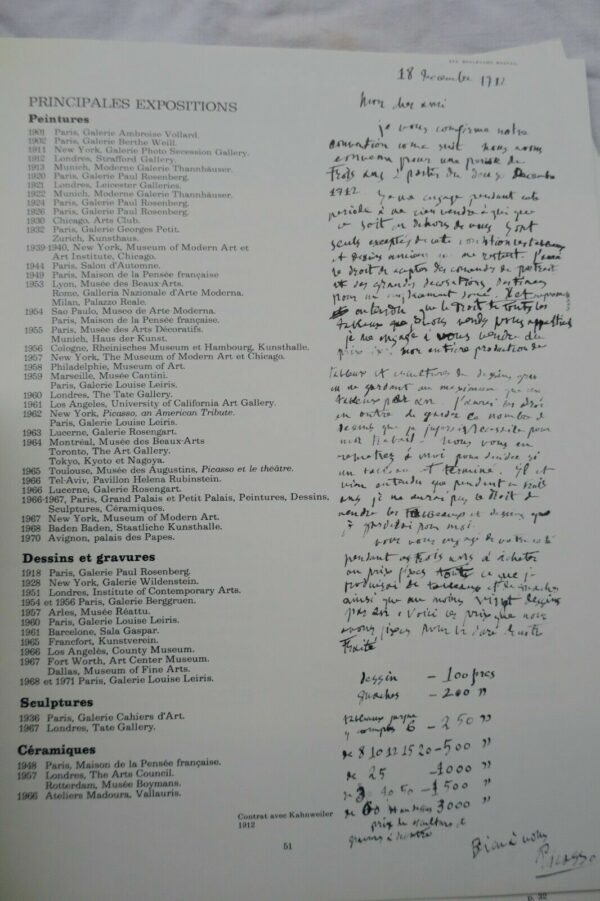 PRINCIPALES EXPOSITIONS
Peintures
1901 Paris, Galerie Ambroise Vollard.
1902 Paris, Galerie Berthe Weill.
1911 New York, Galerie Photo Secession Gallery.
1912 Londres, Strafford Gallery.
1913 Munich, Moderne Galerie Thannhäuser.
1920 Paris, Galerie Paul Rosenberg.
1921 Londres, Leicester Galleries.
1922 Munich, Moderne Galerie Thannhäuser.
1924 Paris, Galerie Paul Rosenberg.
1926 Paris, Galerie Paul Rosenberg.
1930 Chicago, Arts Club.
1932 Paris, Galerie Georges Petit.
Zurich, Kunsthaus.
1939-1940, New York, Museum of Modern Art et
Art Institute, Chicago.
1944 Paris, Salon d'Automne.
1949 Paris, Maison de la Pensée française
1953 Lyon, Musée des Beaux-Arts.
Rome, Galleria Nazionale d'Arte Moderna.
Milan, Palazzo Reale.
1954 Sao Paulo, Museo de Arte Moderna.
Paris, Maison de la Pensée française.
1955 Paris, Musée des Arts Décoratifs.
Munich, Haus der Kunst.
1956 Cologne, Rheinisches Museum et Hambourg, Kunsthalle.
1957 New York, The Museum of Modern Art et Chicago.
1958 Philadelphie, Museum of Art.
1959 Marseille, Musée Cantini.
Paris, Galerie Louise Leiris.
1960 Londres, The Tate Gallery.
1961 Los Angeles, University of California Art Gallery.
1962 New York, Picasso, an American Tribute.
Paris, Galerie Louise Leiris.
1963 Lucerne, Galerie Rosengart.
1964 Montréal, Musée des Beaux-Arts
Toronto, The Art Gallery.
Tokyo, Kyoto et Nagoya.
1965 Toulouse, Musée des Augustins, Picasso et le théâtre.
1966 Tel-Aviv, Pavillon Helena Rubinstein.
1966 Lucerne, Galerie Rosengart.
1966-1967, Paris, Grand Palais et Petit Palais, Peintures, Dessins,
Sculptures, Céramiques.
1967 New York, Museum of Modern Art.
1968 Baden Baden, Staatliche Kunsthalle.
1970 Avignon, palais des Papes.
Dessins et gravures
1918 Paris, Galerie Paul Rosenberg.
1928 New York, Galerie Wildenstein.
1951 Londres, Institute of Contemporary Arts.
1954 et 1956 Paris, Galerie Berggruen.
1957 Arles, Musée Réattu.
1960 Paris, Galerie Louise Leiris.
1961 Barcelone, Sala Gaspar.
1965 Francfort, Kunstverein.
1966 Los Angelès, County Museum.
1967 Fort Worth, Art Center Museum.
Dallas, Museum of Fine Arts.
1968 et 1971 Paris, Galerie Louise Leiris.
Sculptures
1936 Paris, Galerie Cahiers d'Art.
1967 Londres, Tate Gallery.
Céramiques
1948 Paris, Maison de la Pensée française.
1957 Londres, The Arts Council.
Rotterdam, Musée Boymans.
1966 Ateliers Madoura, Vallauris.
Contrat avec Kahnweiler
1912
51
18 decembre 1912
Mon cher ami
je vous confirme notre
convention come suit nous nous
convenu pour une periode de
trois ans a partir du deux decembre
1912. Je m engage pendant cete
periode à ne rien vendre à qui que
ce soit en dehors de vous. Sont
seuls exceptés de cete condition les tableaux
et dessins anciens qui me restent. J'aurai
le droit de accepter des comandes de portraits
et des grandes decorations destinées
pour un emplacement
que le droit de tous les
tableaux que vous
je m engage à vous vendre
prix fixe mon entiere production de
tableaux et sculptures de dessins
ne gardant au maximum que cinq
tableaux par an. J'aurai le droit
en outre de garder ce nombre de
dessins que je jugerai necessaire pour
mon travail. Vous vous en
remetrez à moi pour decider si
un tableau est terminé. Il est
bien entendu que pendant ces trois
ans je ne aurai pas le droit de
vendre les tableaux et dessins que
je garderai pour moi.
vous vous engagez de votre coté
pendant ces trois ans à acheter
au prix fixes tout ce que je
produirai de tableaux et de gouaches
ainsi que au moins vingt dessins
par an. Voici les prix que nous
avons fixés pour la durée de notre
traité
dessin — 100 frs
gouaches — 200 "
tableaux jusque
y compris 6 — 250 "
de 8 10 12 15 20 — 500 "
de 25 — 1000 "
de 30 40 50 — 1500 "
de 60 et au dessus 3000 "
prix de sculture et
gravures à debatre
Bien à vous
Picasso
p. 32